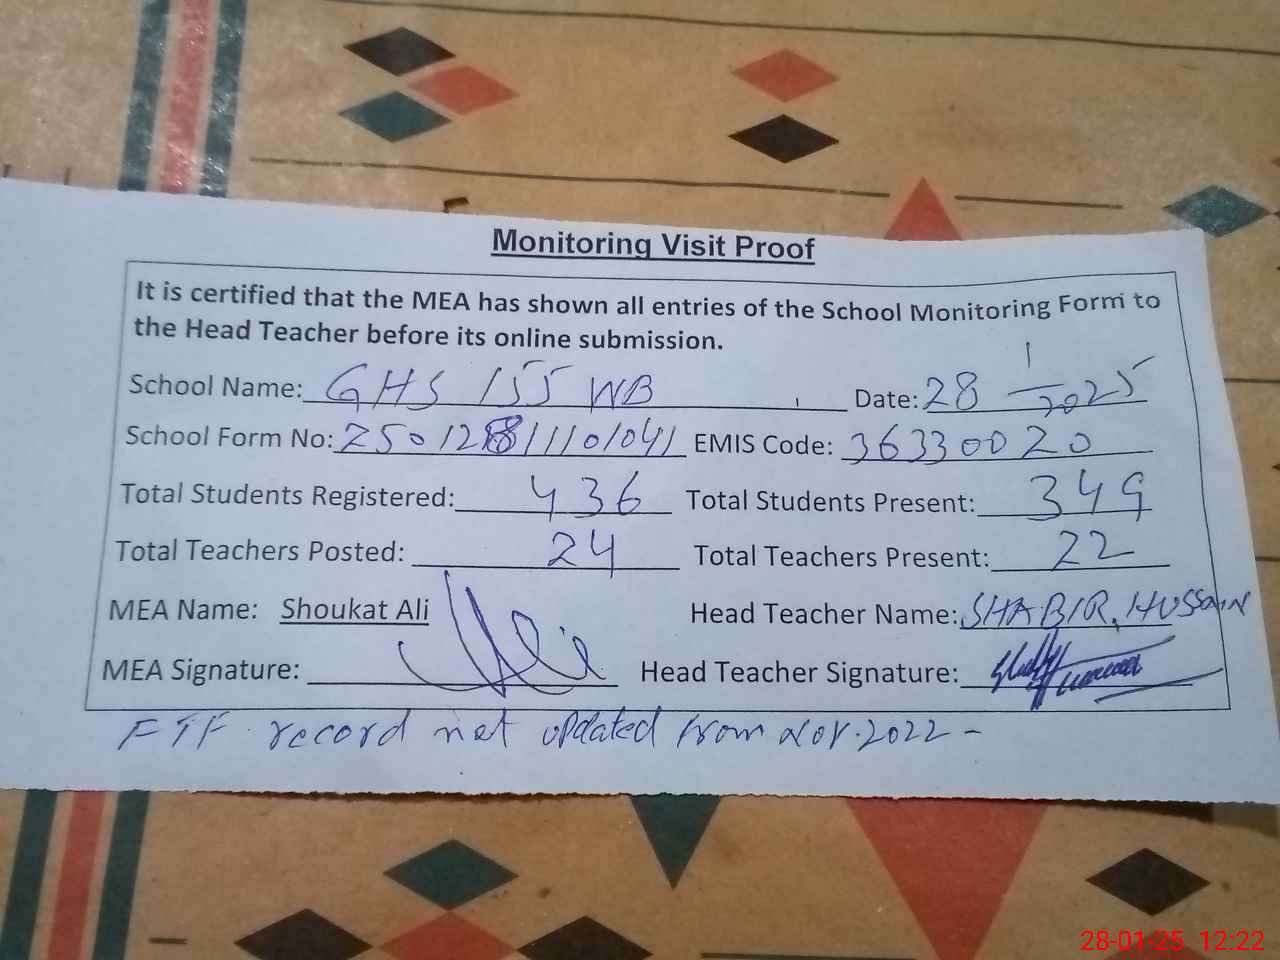 Monitoring Visit Proof
It is certified that the MEA has shown all entries of the School Monitoring Form to
the Head Teacher before its online submission.
School Name: GHS 155 WB Date: 28/1/2025
School Form No: EMIS Code: 36330020
Total Students Registered: 436 Total Students Present: 349
Total Teachers Posted: 24 Total Teachers Present: 22
MEA Name: Shoukat Ali Head Teacher Name: SHABIR HUSSAIN
MEA Signature: Head Teacher Signature:
FTF record not updated from Nov. 2022 -
28-01-25 12:22